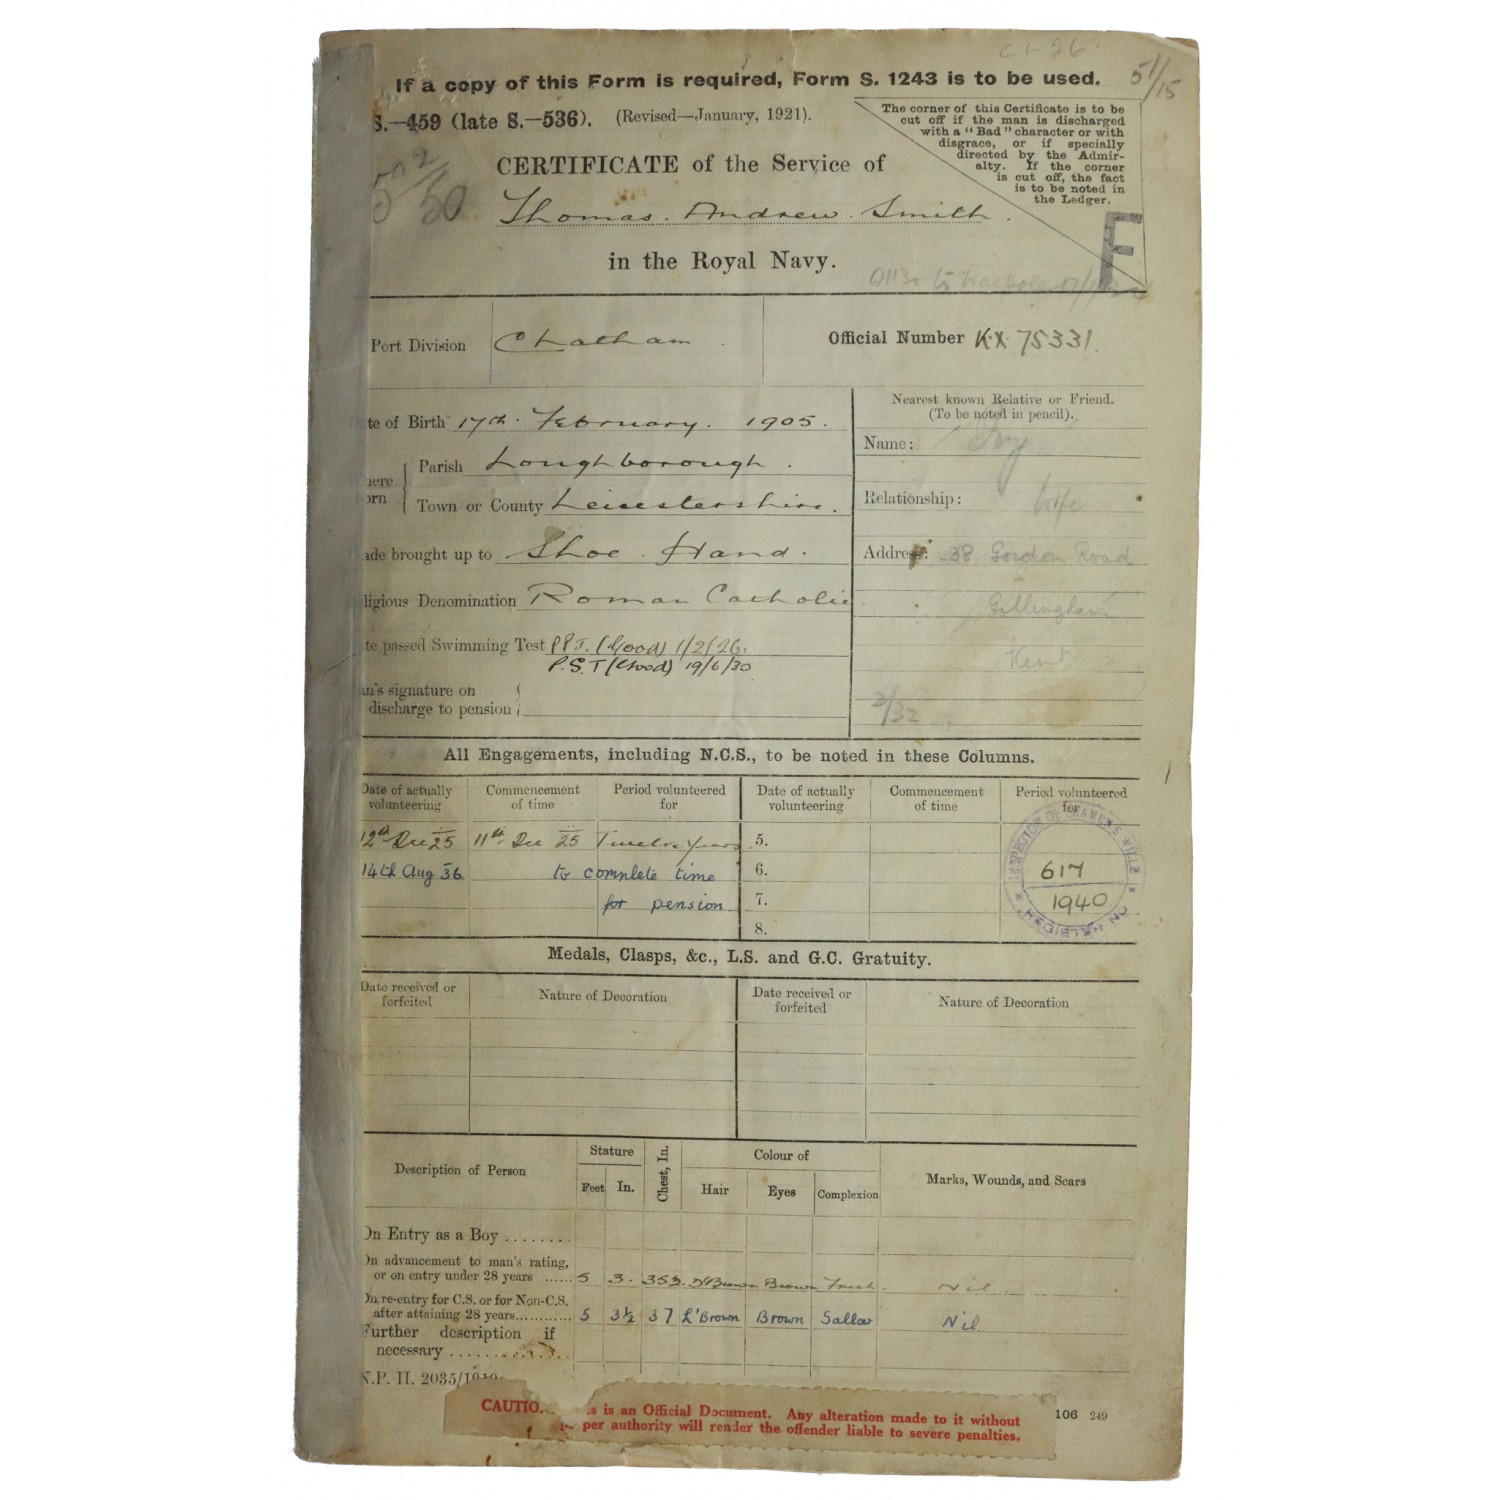 C1-26.
If a copy of this Form is required, Form S. 1243 is to be used.
51/15
S.—459 (late S.—536). (Revised—January, 1921).
The corner of this Certificate is to be
cut off if the man is discharged
with a "Bad" character or with
disgrace, or if specially
directed by the Admir-
alty. If the corner
is cut off, the fact
is to be noted in
the Ledger.
CERTIFICATE of the Service of
Thomas. Andrew. Smith.
in the Royal Navy.
F
Port Division Chatham
Official Number KX 75331.
te of Birth 17th. February. 1905.
Parish Loughborough.
ere
orn
Town or County Leicestershire.
ade brought up to Shoe. Hand.
ligious Denomination Roman Catholic
te passed Swimming Test P.P.T. (Good) 1/2/26.
P.S.T (Good) 19/6/30
an's signature on
discharge to pension
Nearest known Relative or Friend.
(To be noted in pencil).
Name: Ivy
Relationship: Wife
Address: 38 Gordon Road
Gillingham
Kent
2/32
All Engagements, including N.C.S., to be noted in these Columns.
Date of actually volunteering Commencement of time Period volunteered for Date of actually volunteering Commencement of time Period volunteered for
12th Dec 25 11th. Dec 25 Twelve Years 5.
14th Aug 36 to complete time 6.
for pension 7.
8.
INSPECTOR OF SEAMEN'S WILLS
617
1940
REGISTER NO
Medals, Clasps, &c., L.S. and G.C. Gratuity.
Date received or forfeited Nature of Decoration Date received or forfeited Nature of Decoration
Description of Person Stature Feet In. Chest, In. Colour of Hair Eyes Complexion Marks, Wounds, and Scars
On Entry as a Boy ........
On advancement to man's rating,
or on entry under 28 years ...... 5 3. 35½ D'Brown Brown Fresh. Nil.
On re-entry for C.S. or for Non-C.S.
after attaining 28 years............ 5 3½ 37 L'Brown Brown Sallow Nil
Further description if
necessary ............
N.P. II. 2035/1919
CAUTIO s is an Official Document. Any alteration made to it without
per authority will render the offender liable to severe penalties.
106 249